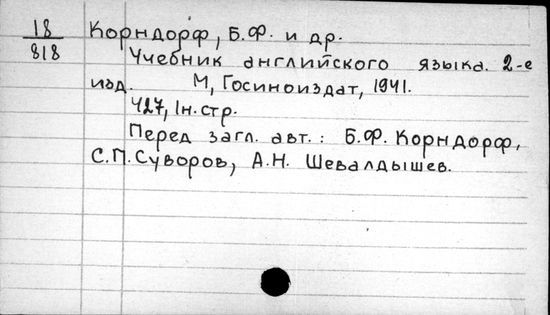 18
818
Корндорф, Б.Ф. и др.
Учебник английского языка. 2-е
изд. М, Госиноиздат, 1941.
427, 1н.стр.
Перед загл. авт.: Б.Ф. Корндорф,
С.П. Суворов, А.Н. Шевалдышев.